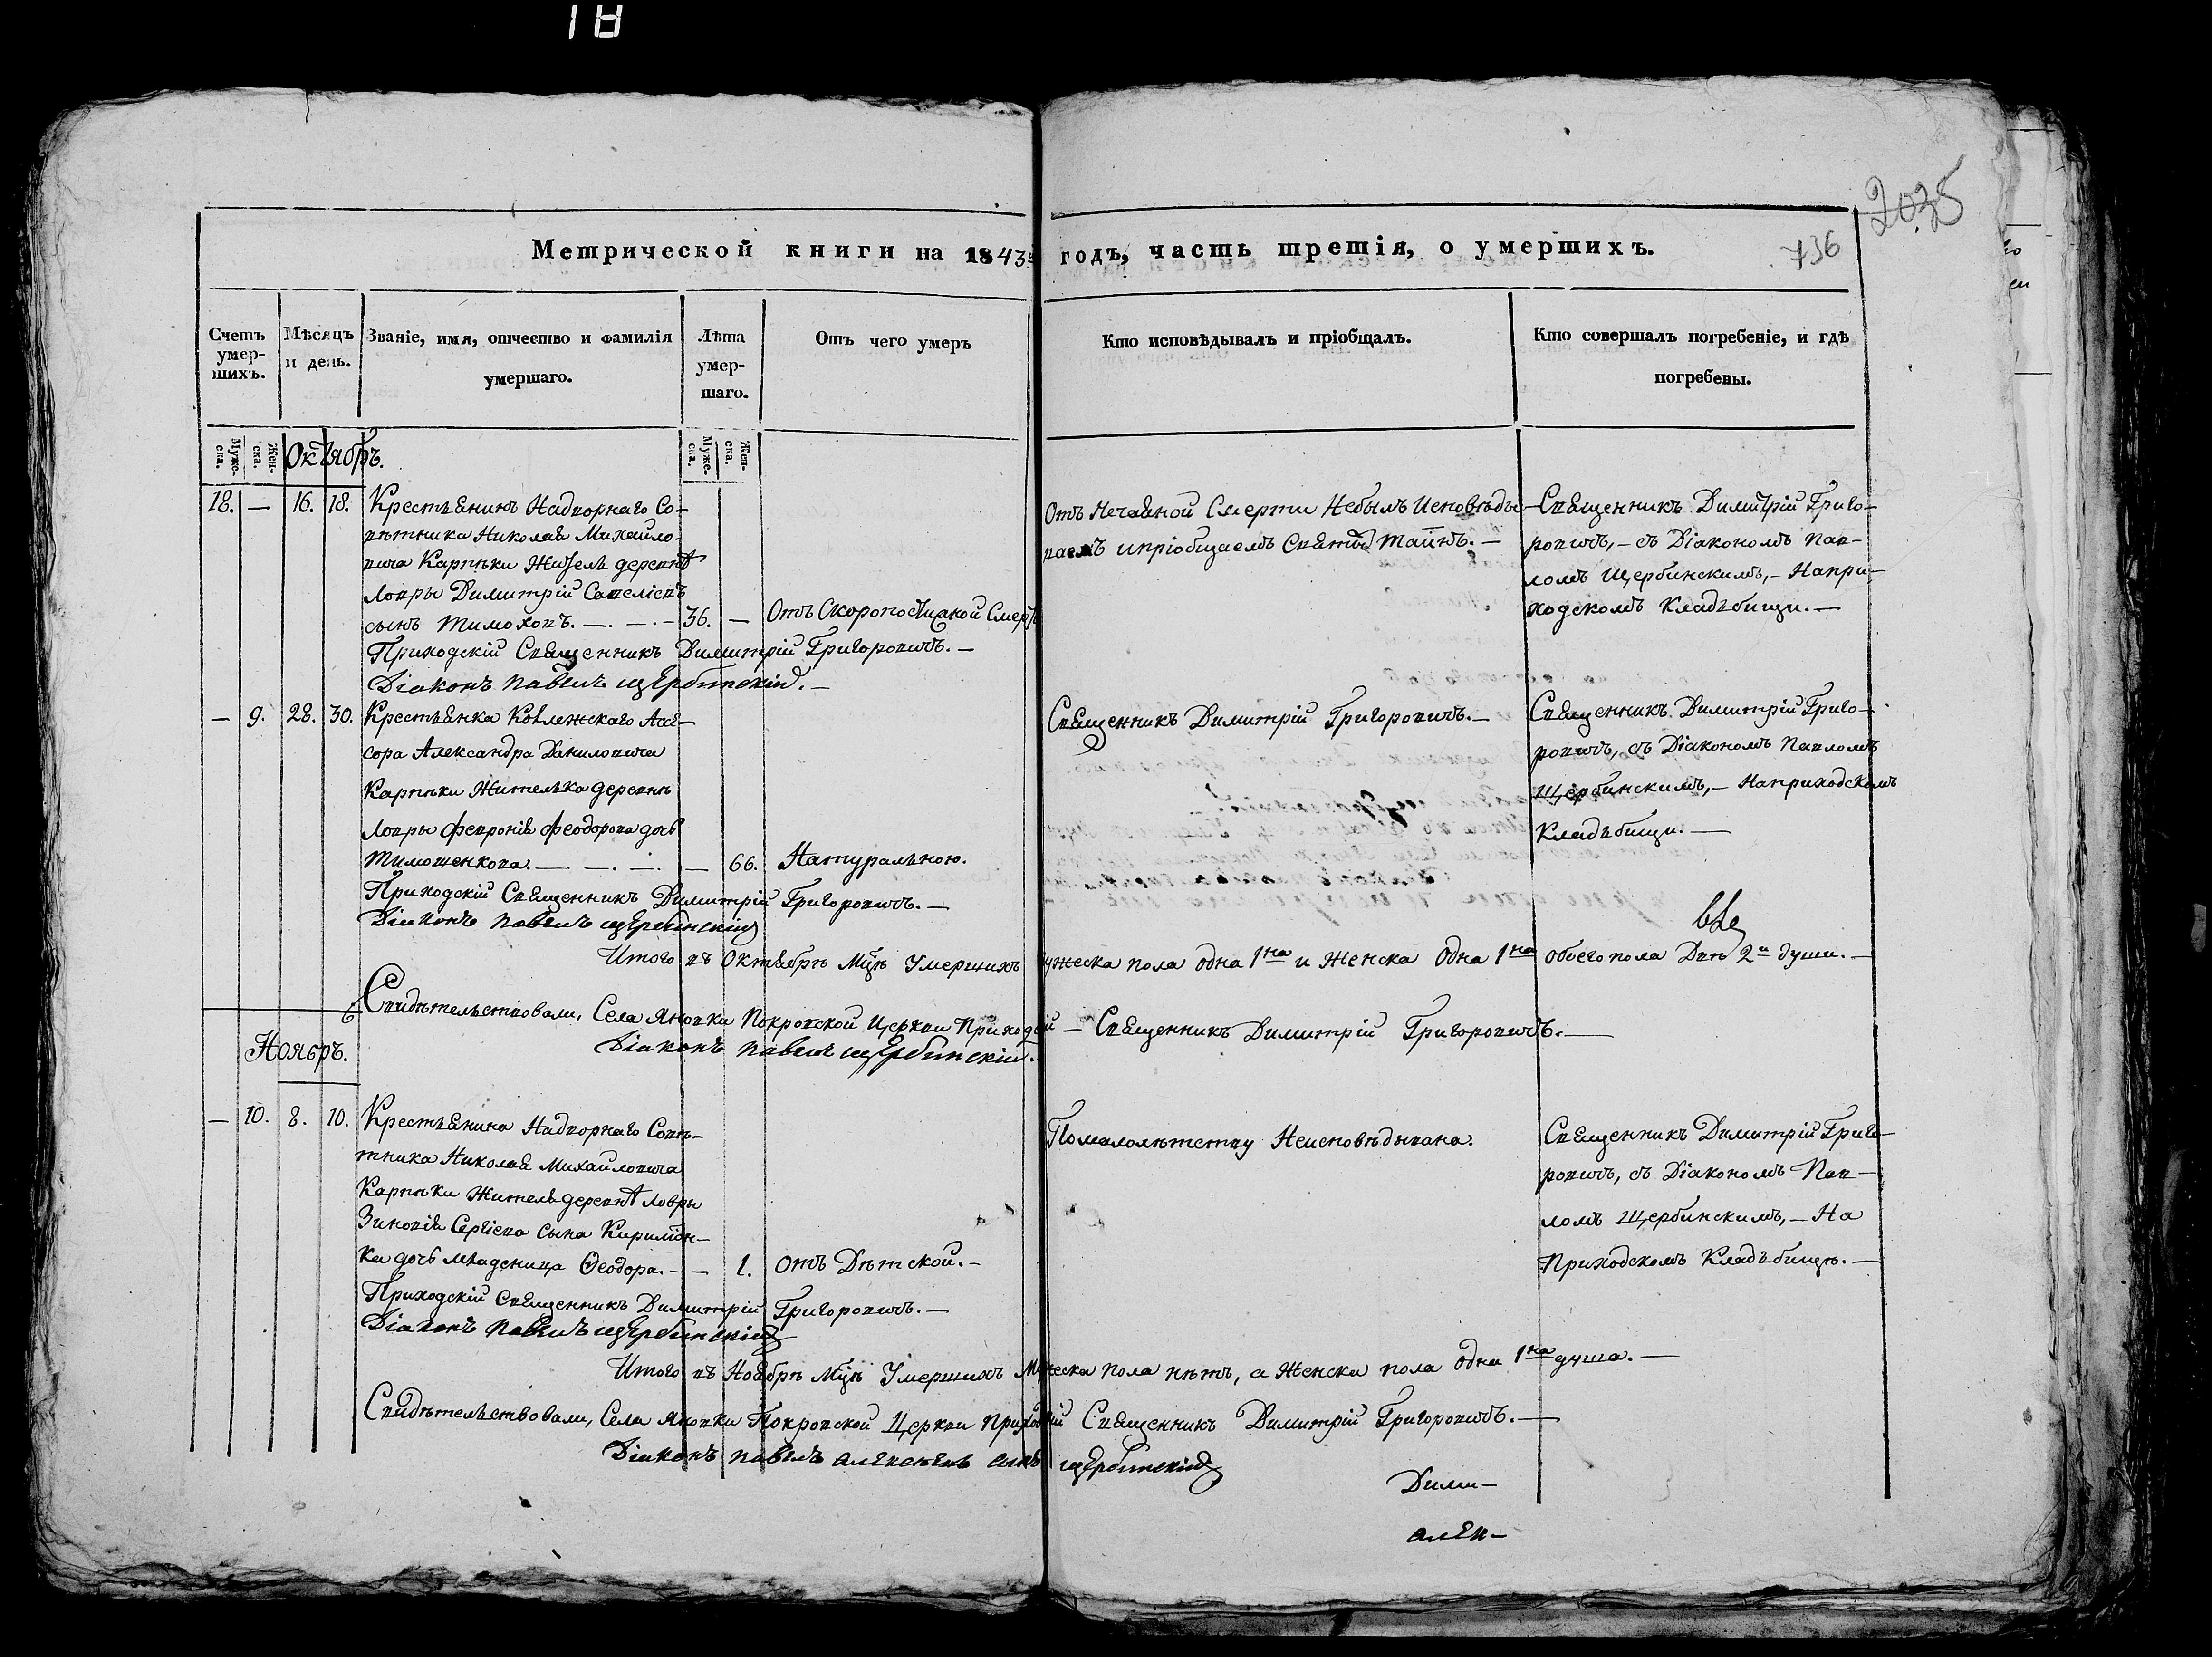 18
2035
736
Метрической книги на 1843й годъ, часть третія, о умершихъ.
Счетъ умер-шихъ.
Мѣсяцъ и день.
Званіе, имя, отчество и фамилія умершаго.
Лѣта умер-шаго.
Отъ чего умеръ
Кто исповѣдывалъ и пріобщалъ.
Кто совершалъ погребеніе, и гдѣ погребены.
Муже-ска.
Жен-ска.
Октябрь.
Муже-ска.
Жен-ска.
18. — 16. 18.
Крестьянинъ Надворнаго Со-
вѣтника Николая Михайло-
вича Карпѣки Житель деревнѣ
Ловры Димитрій Савеліевъ
сынъ Тимоховъ. — . — . — 36. — Отъ Скоропостижной Смерт
Приходскій Священникъ Димитрій Григоровичъ. —
Діаконъ Павелъ Щербинскій. —
Отъ Нечаяной Смерти Небылъ Исповѣды-
ваемъ ипріобщаемъ Святыхъ Таинъ. —
Священникъ Димитрій Григо-
ровичъ, — съ Діакономъ Пав-
ломъ Щербинскимъ, — Напри-
ходскомъ Кладьбищи. —
— 9. 28. 30.
Крестьянка Колежскаго Ассе-
сора Александра Даниловича
Карпѣки Жителька деревнѣ
Ловры Февронія Феодорова дочь
Тимошенкова. — . — . — . — 66. Натуральною.
Приходскій Священникъ Димитрій Григоровичъ. —
Діаконъ Павелъ Щербинскій
Священникъ Димитрій Григоровичъ. —
Священникъ Димитрій Григо-
ровичъ, съ Діакономъ Павломъ
Щербинскимъ, — Наприходскомъ
Кладьбищи. —
Итого въ Октябрѣ Мцѣ Умершихъ ужеска пола одна 1на и Женска Одна 1на обоего пола Двѣ 2и души. —
Свидѣтельствовали, Села Яновки Покровской Церкви Приходскій — Священникъ Димитрій Григоровичъ. —
Діаконъ Павелъ Щербинскій.
Ноябрь.
— 10. 8. 10.
Крестьянина Надворнаго Совѣ-
тника Николая Михайловича
Карпѣки Житель деревнѣ Ловры
Зиновія Сергіева Сына
ка дочь младеница Ѳеодора. — — 1. Отъ Дѣтской. —
Приходскій Священникъ Димитрій Григоровичъ. —
Діаконъ Павелъ Щербинскій
Помалолѣтству Неисповѣдывана.
Священникъ Димитрій Григо-
ровичъ, съ Діакономъ Пав-
ломъ Щербинскимъ, — На
Приходскомъ Кладьбищѣ. —
Итого въ Ноябрѣ Мцѣ Умершихъ Мужеска пола нѣтъ, а Женска пола одна 1на душа. —
Свидѣтельствовали, Села Яновки Покровской Церкви Приходскій Священникъ Димитрій Григоровичъ. —
Діаконъ Павелъ Алексѣевъ сынъ Щербинскій
Дими-
Алек-